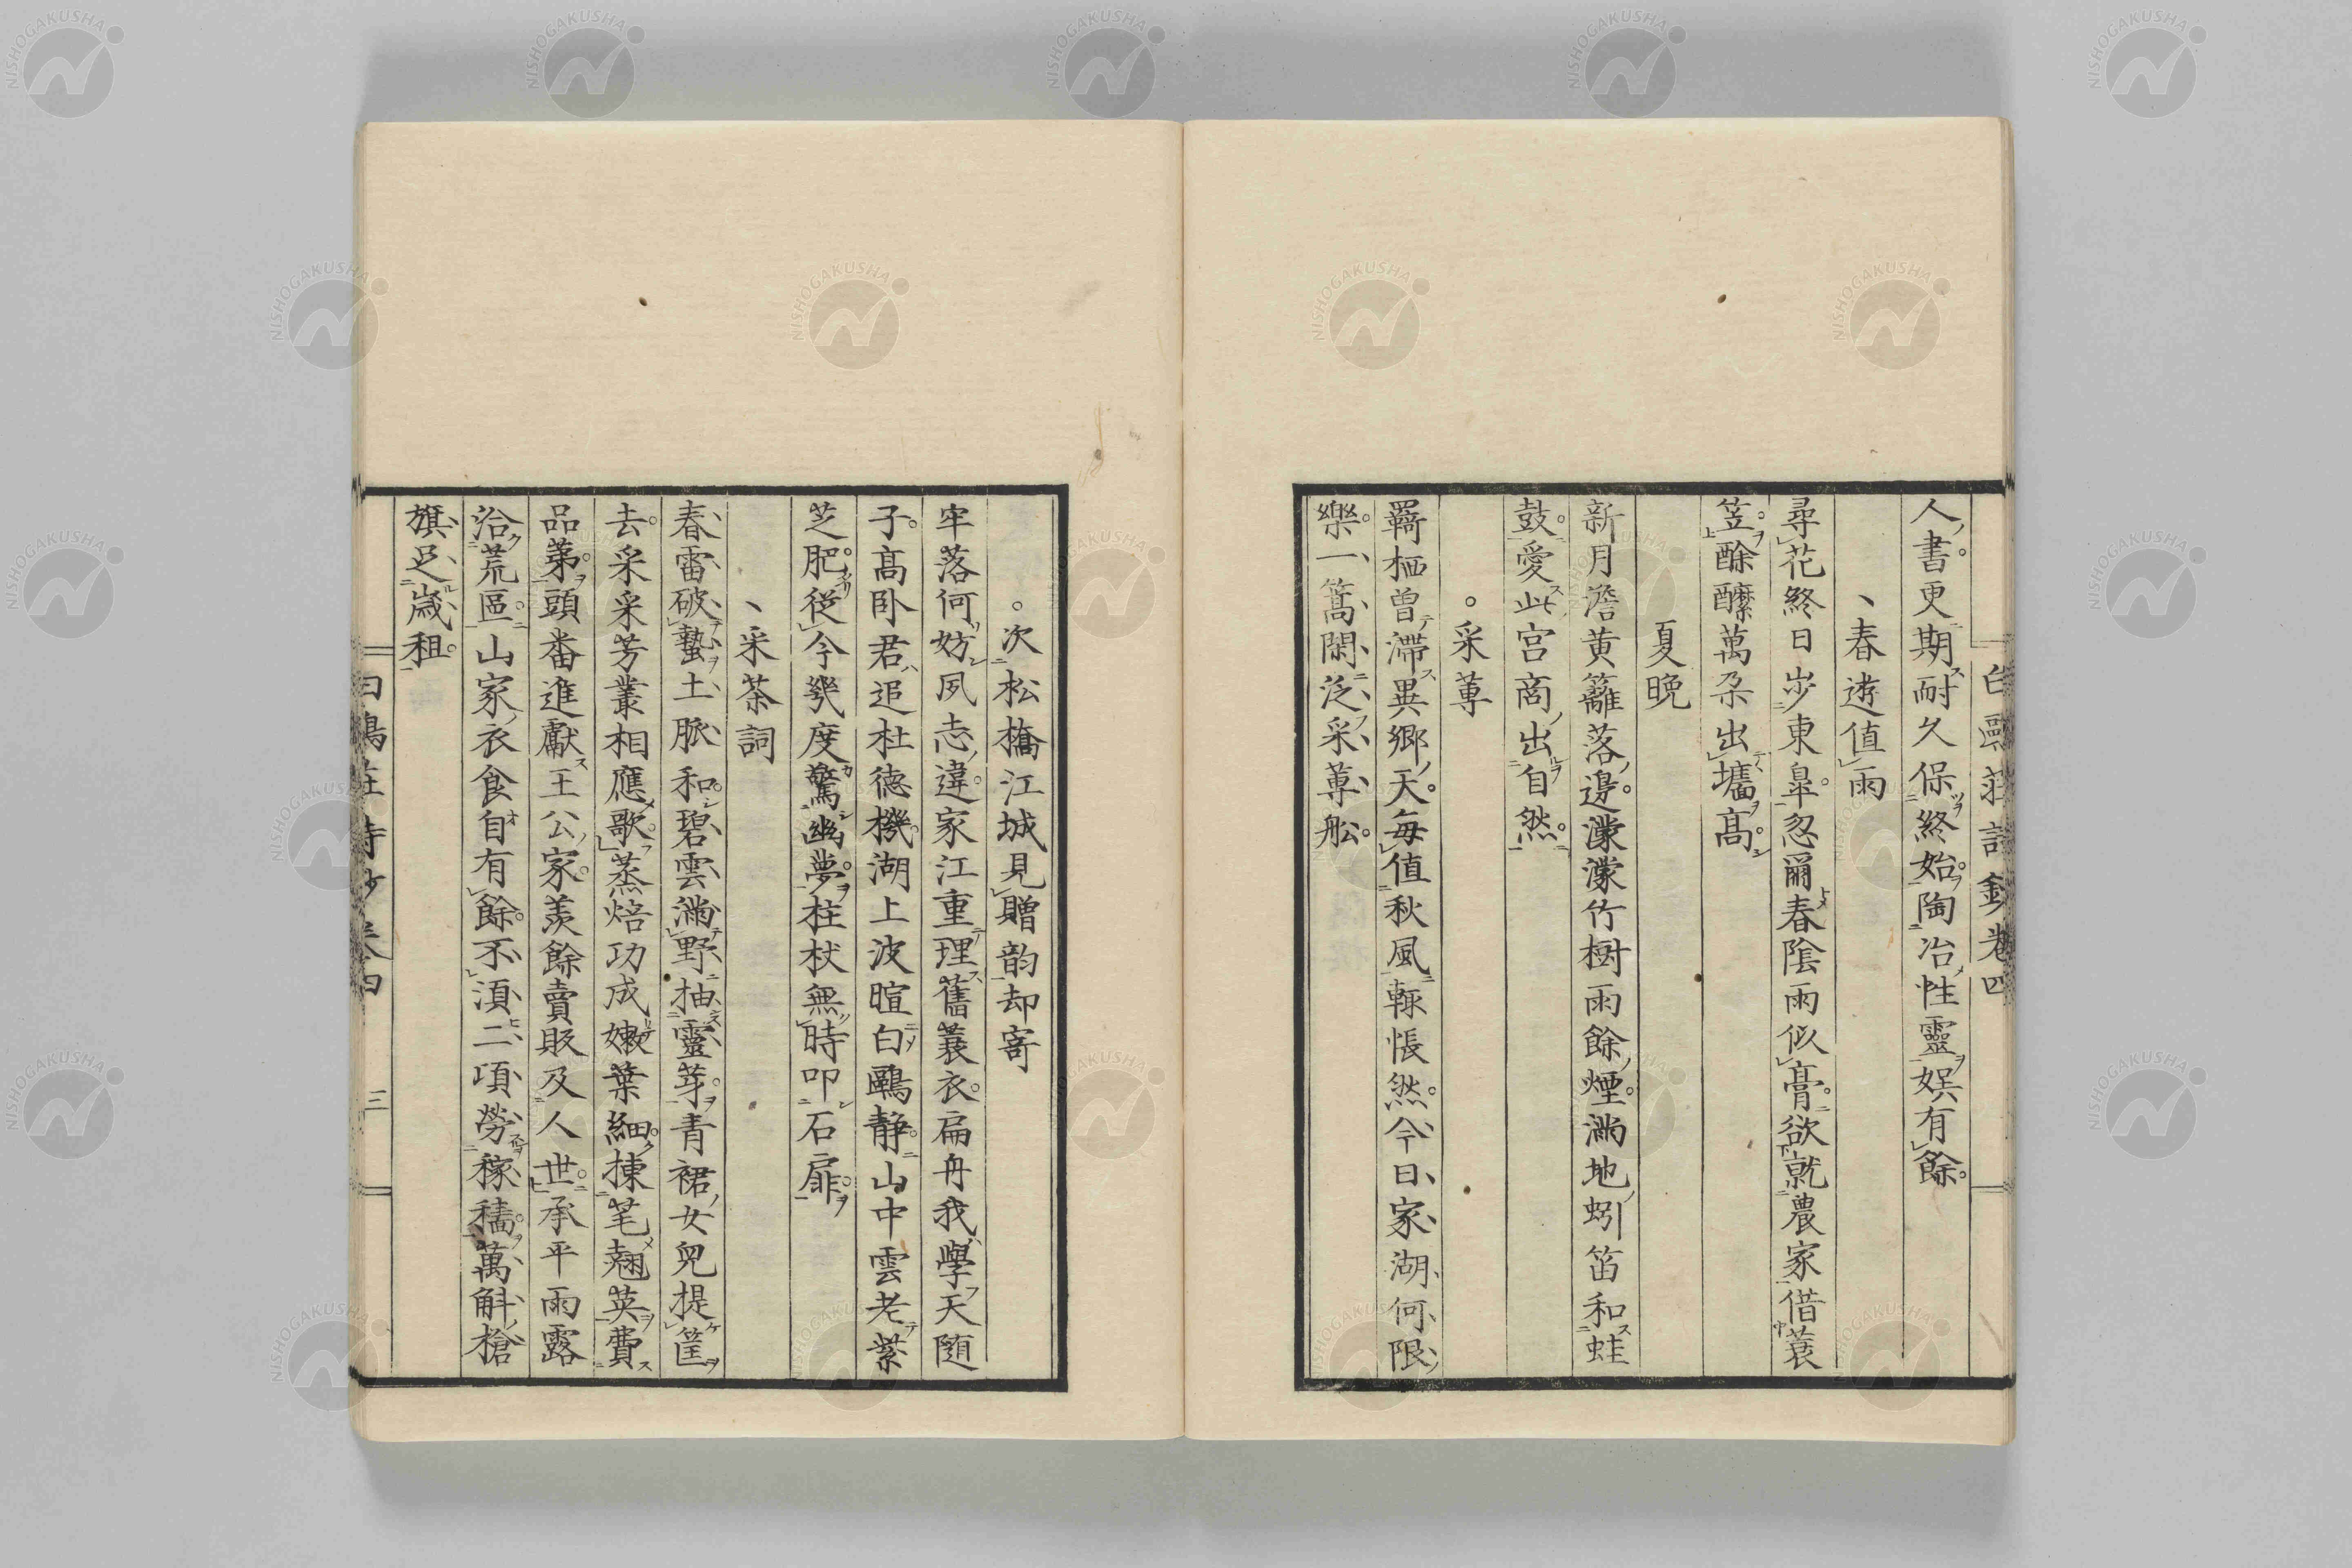 白鷗莊詩鈔卷四
人書更期耐久保終始陶冶性靈娯有餘
春遊值雨
尋花終日步東皐忽爾春陰雨似膏欲就農家借蓑
笠酴醾萬朶出墻高
夏晚
新月澹黃籬落邊濛濛竹樹雨餘煙滿地蚓笛和蛙
鼓愛此宮商出自然
采蓴
羇栖曾滯異鄉天每值秋風輙悵然今日家湖何限
樂一篙閑泛采蓴舩
次松橋江城見贈韵却寄
牢落何妨夙志違家江重理舊蓑衣扁舟我學天随
子高卧君追杜德機湖上波暄白鷗静山中雲老紫
芝肥從今幾度驚幽夢柱杖無時叩石扉
采茶詞
春雷破蟄土脈和碧雲滿野抽靈芽青裙女兒提筐
去采采芳叢相應歌蒸焙功成嫩葉細揀筅翹英費
品第頭番進獻王公家羨餘賣販及人世承平雨露
洽荒區山家衣食自有餘不須二項勞稼穡萬斛槍
旗足歲租
白鷗莊詩鈔卷四
三
NISHOGAKUSHA